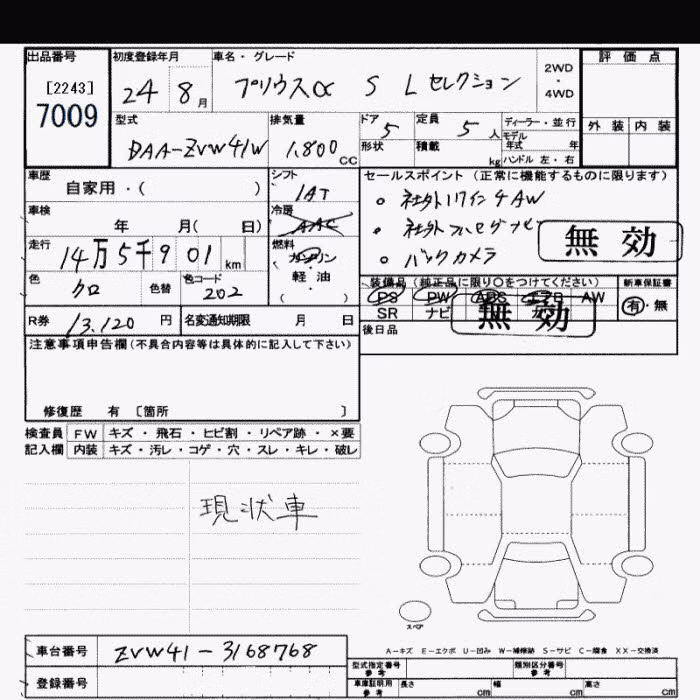 出品番号 初度登録年月 車名・グレード 評価点
[2243] 24 8月 プリウスα S Lセレクション 2WD・4WD
7009
型式 排気量 ドア 定員 ディーラー・並行 外装 内装
DAA-ZVW41W 1,800CC 5 5人 モデル年式 年
形状 積載 kg ハンドル 左・右
車歴 シフト セールスポイント (正常に機能するものに限ります)
自家用・( ) IAT 社外17インチAW
車検 年 月( 日) 冷房 AAC 社外フルセグナビ
走行 14万5千901km 燃料 ガソリン・軽油( ) バックカメラ
無効
色 クロ 色替 色コード 202 装備品(純正品に限り○をつけてください) 新車保証書
PS PW ABS エアロ AW 有・無
SR ナビ
無効
R券 13,120円 名変通知期限 月 日 後日品
注意事項申告欄(不具合内容等は具体的に記入して下さい)
修復歴 有 〔箇所 〕
検査員 FW キズ・飛石・ヒビ割・リペア跡・×要
記入欄 内装 キズ・汚レ・コゲ・穴・スレ・キレ・破レ
現状車
スペア
A-キズ E-エクボ U-凹み W-補修跡 S-サビ C-腐食 XX-交換済
車台番号 ZVW41-3168768 型式指定番号 参考 類別区分番号 参考
登録番号 車庫証明用 参考 長さ cm 幅 cm 高さ cm